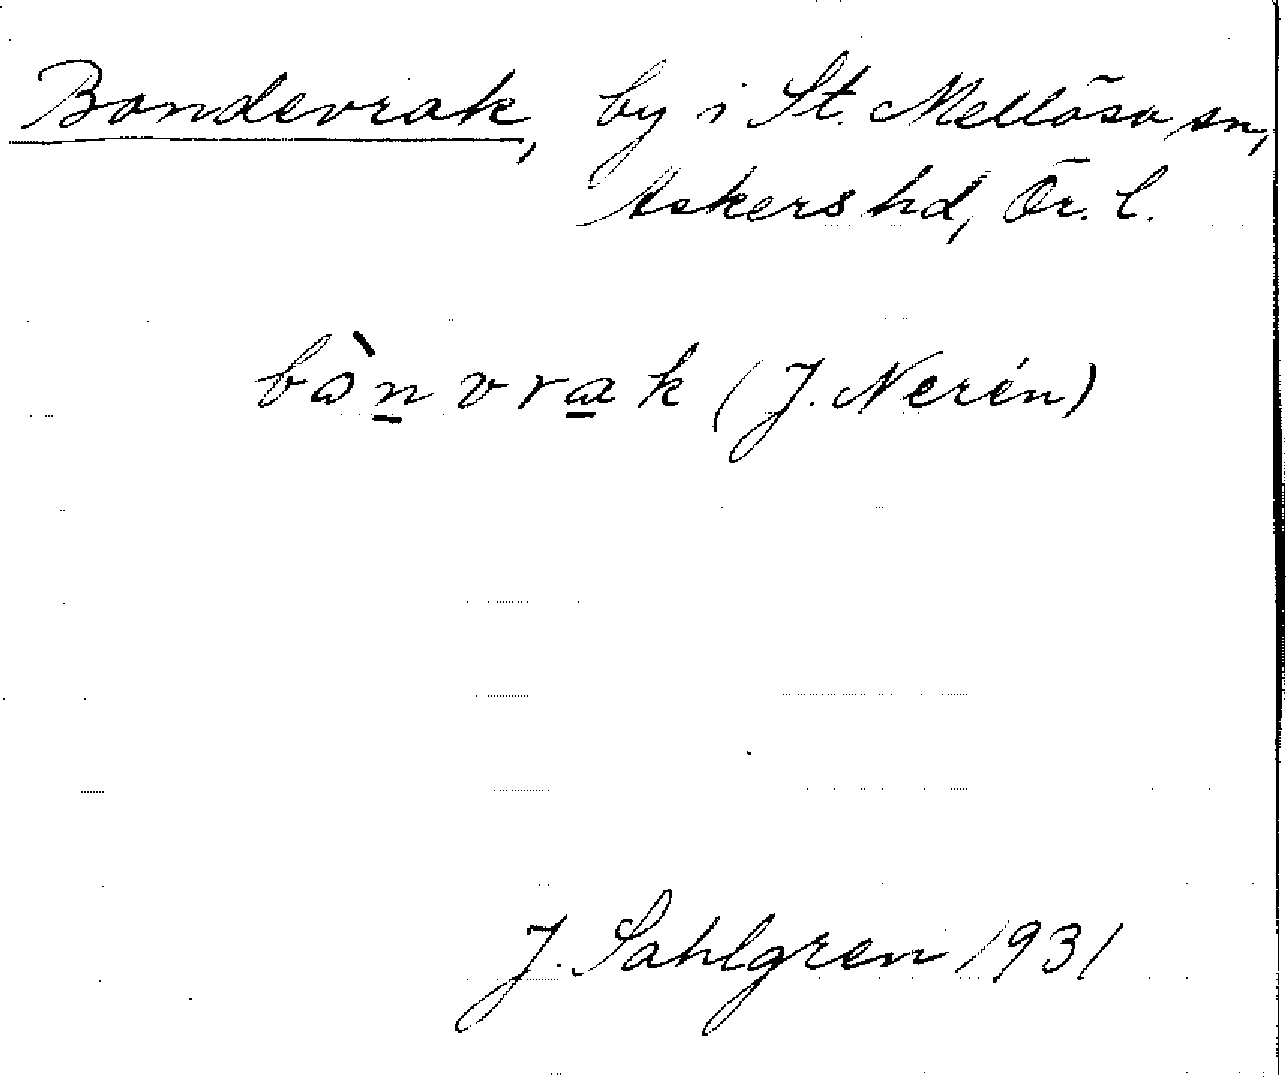 Bondevrak, by i St. Mellösa sn,
Askers hd, Ör. l.
bònvrak (J. Nerén)
J. Sahlgren 1931